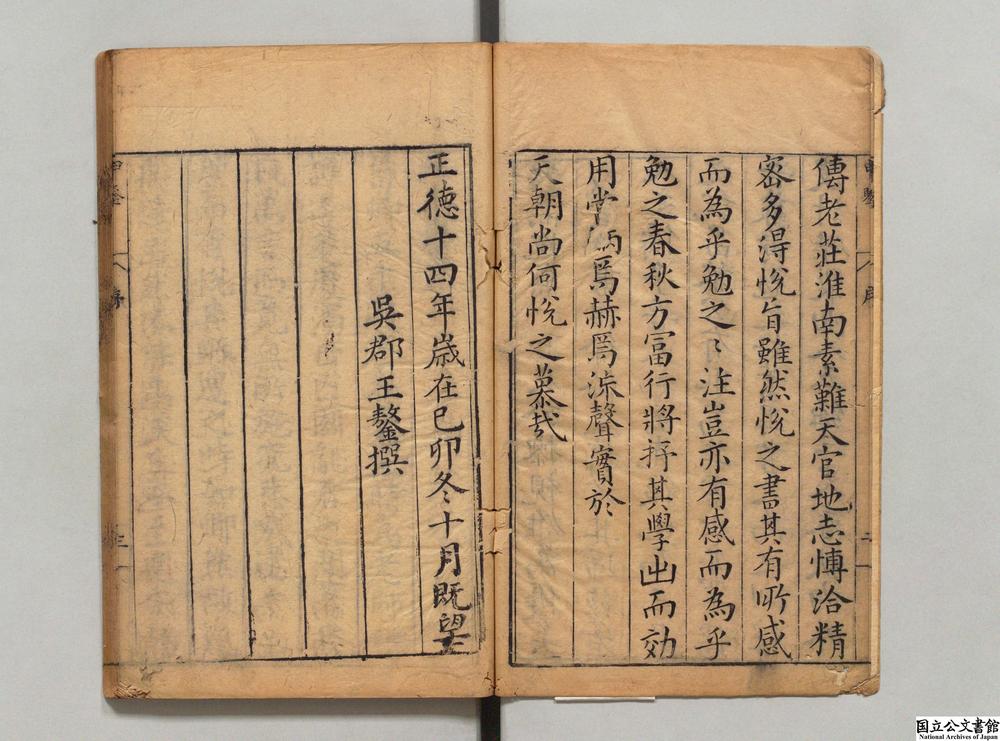 傳老莊淮南素難天官地志愽洽精
宻多得恱旨雖然恱之書其有所感
而為乎勉之〻注豈亦有感而為乎
勉之春秋方冨行將抒其學出而効
用當焉赫焉流聲實於
天朝尚何恱之慕哉
正德十四年歲在己卯冬十月既望
吳郡王鏊撰
序
二
国立公文書館
National Archives of Japan